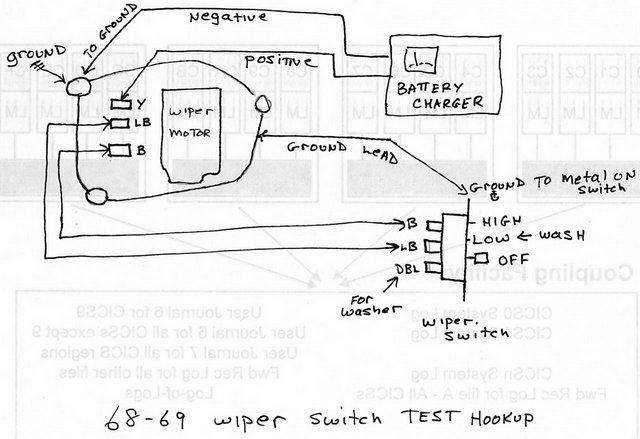 Negative
TO GROUND
GROUND
Positive
BATTERY
CHARGER
Y
LB
B
Wiper
MOTOR
GROUND LEAD
GROUND TO METAL ON
Switch
B
LB
DBL
HIGH
LOW ← WASH
OFF
FOR
washer
Wiper.
Switch
Coupling Facility
CICS9 System Log
User Journal 6 for CICS9
User Journal 6 for all CICSs except 9
User Journal 7 for all CICS regions
CICSn System Log
Fwd Rec Log for all other files
Fwd Rec Log for file A - All CICSs
Log-of-Logs
68-69 wiper switch TEST HOOKUP